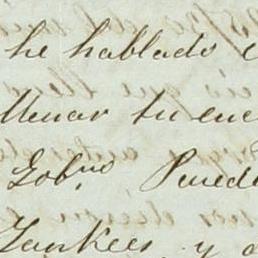 he hablado
llenar tu enc
Gobno Puede
Yankees y a